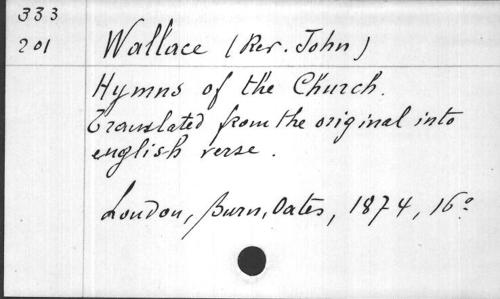 333
201 Wallace (Rev. John)
Hymns of the Church.
Translated from the original into
english verse.
London, Burn, Oates, 1874, 16º